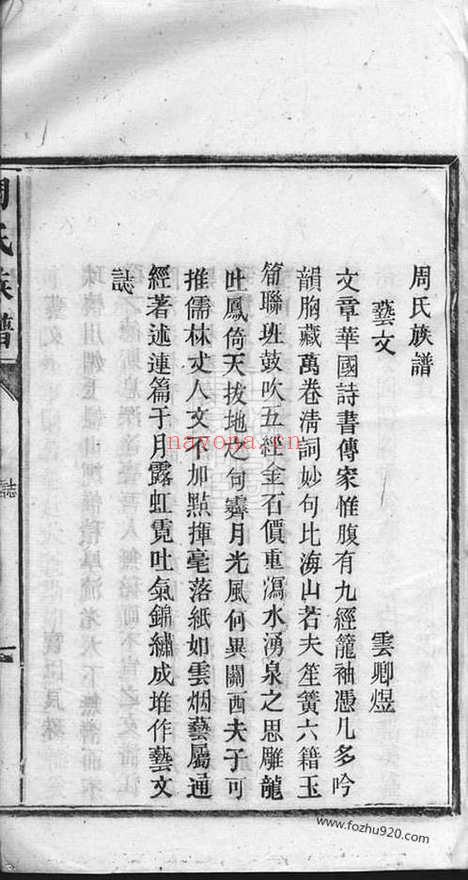 周氏族譜
藝文 雲卿煜
文章華國詩書傳家惟腹有九經籠袖憑几多吟
韻胸藏萬卷清詞妙句比海山若夫笙簧六籍玉
筍聯班鼓吹五經金石價重瀉水湧泉之思雕龍
吐鳳倚天拔地之句霽月光風何異關西夫子可
推儒林丈人文不加點揮毫落紙如雲烟藝屬通
經著述連篇于月露虹霓吐氣錦繡成堆作藝文
誌
周氏族譜
誌
一
nayona.cn
www.fozhu920.com